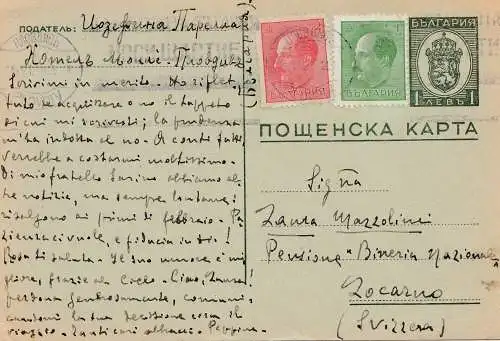 ПОДАТЕЛЬ: Йозефина Парелла
Хотель Молле - Пловдивъ
(Bulgaria)
Scrivimi in merito. Ho riflet-
tuto se acquistare o no il tappeto
di cui mi scrivesti; la prudenza
m'ha indotta al no. A conti fatti,
verrebbe a costarmi moltissimo.
Di mio fratello Savino abbiamo al-
tre notizie, ma sempre lontane:
risalgono ai primi di febbraio. Pa-
zienza ci vuole, e fiducia in Dio!
Rosa ti saluta. Il suo umore è mi-
gliore, grazie al Cielo. Ciao, Laura!
perdona generosamente, comuni-
cami la tua decisione circa il
viaggio. Tanti cari abbracci. Peppina
БЪЛГАРИЯ
БЪЛГАРИЯ
БЪЛГАРИЯ
1 ЛЕВЪ 1
ПОЩЕНСКА КАРТА
Sig.na
Laura Mazzolini
Pensione "Bineria Nazionale"
Locarno
(Svizzera)